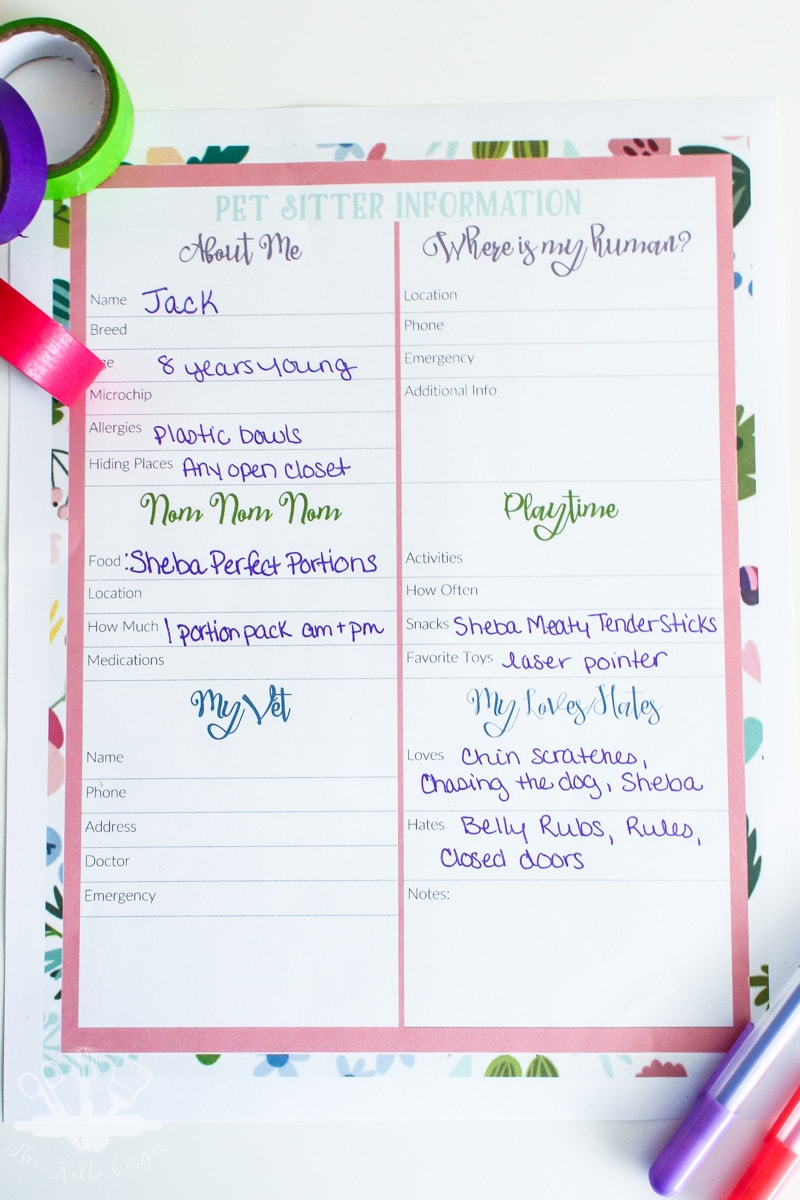 PET SITTER INFORMATION
About Me
Name Jack
Breed
ge 8 years young
Microchip
Allergies Plastic bowls
Hiding Places Any open closet
Nom Nom Nom
Food: Sheba Perfect Portions
Location
How Much 1 portion pack am + pm
Medications
My Vet
Name
Phone
Address
Doctor
Emergency
Where is my human?
Location
Phone
Emergency
Additional Info
Playtime
Activities
How Often
Snacks Sheba Meaty Tender Sticks
Favorite Toys laser pointer
My Loves/Hates
Loves Chin scratches,
Chasing the dog, Sheba
Hates Belly Rubs, Rules,
Closed doors
Notes: